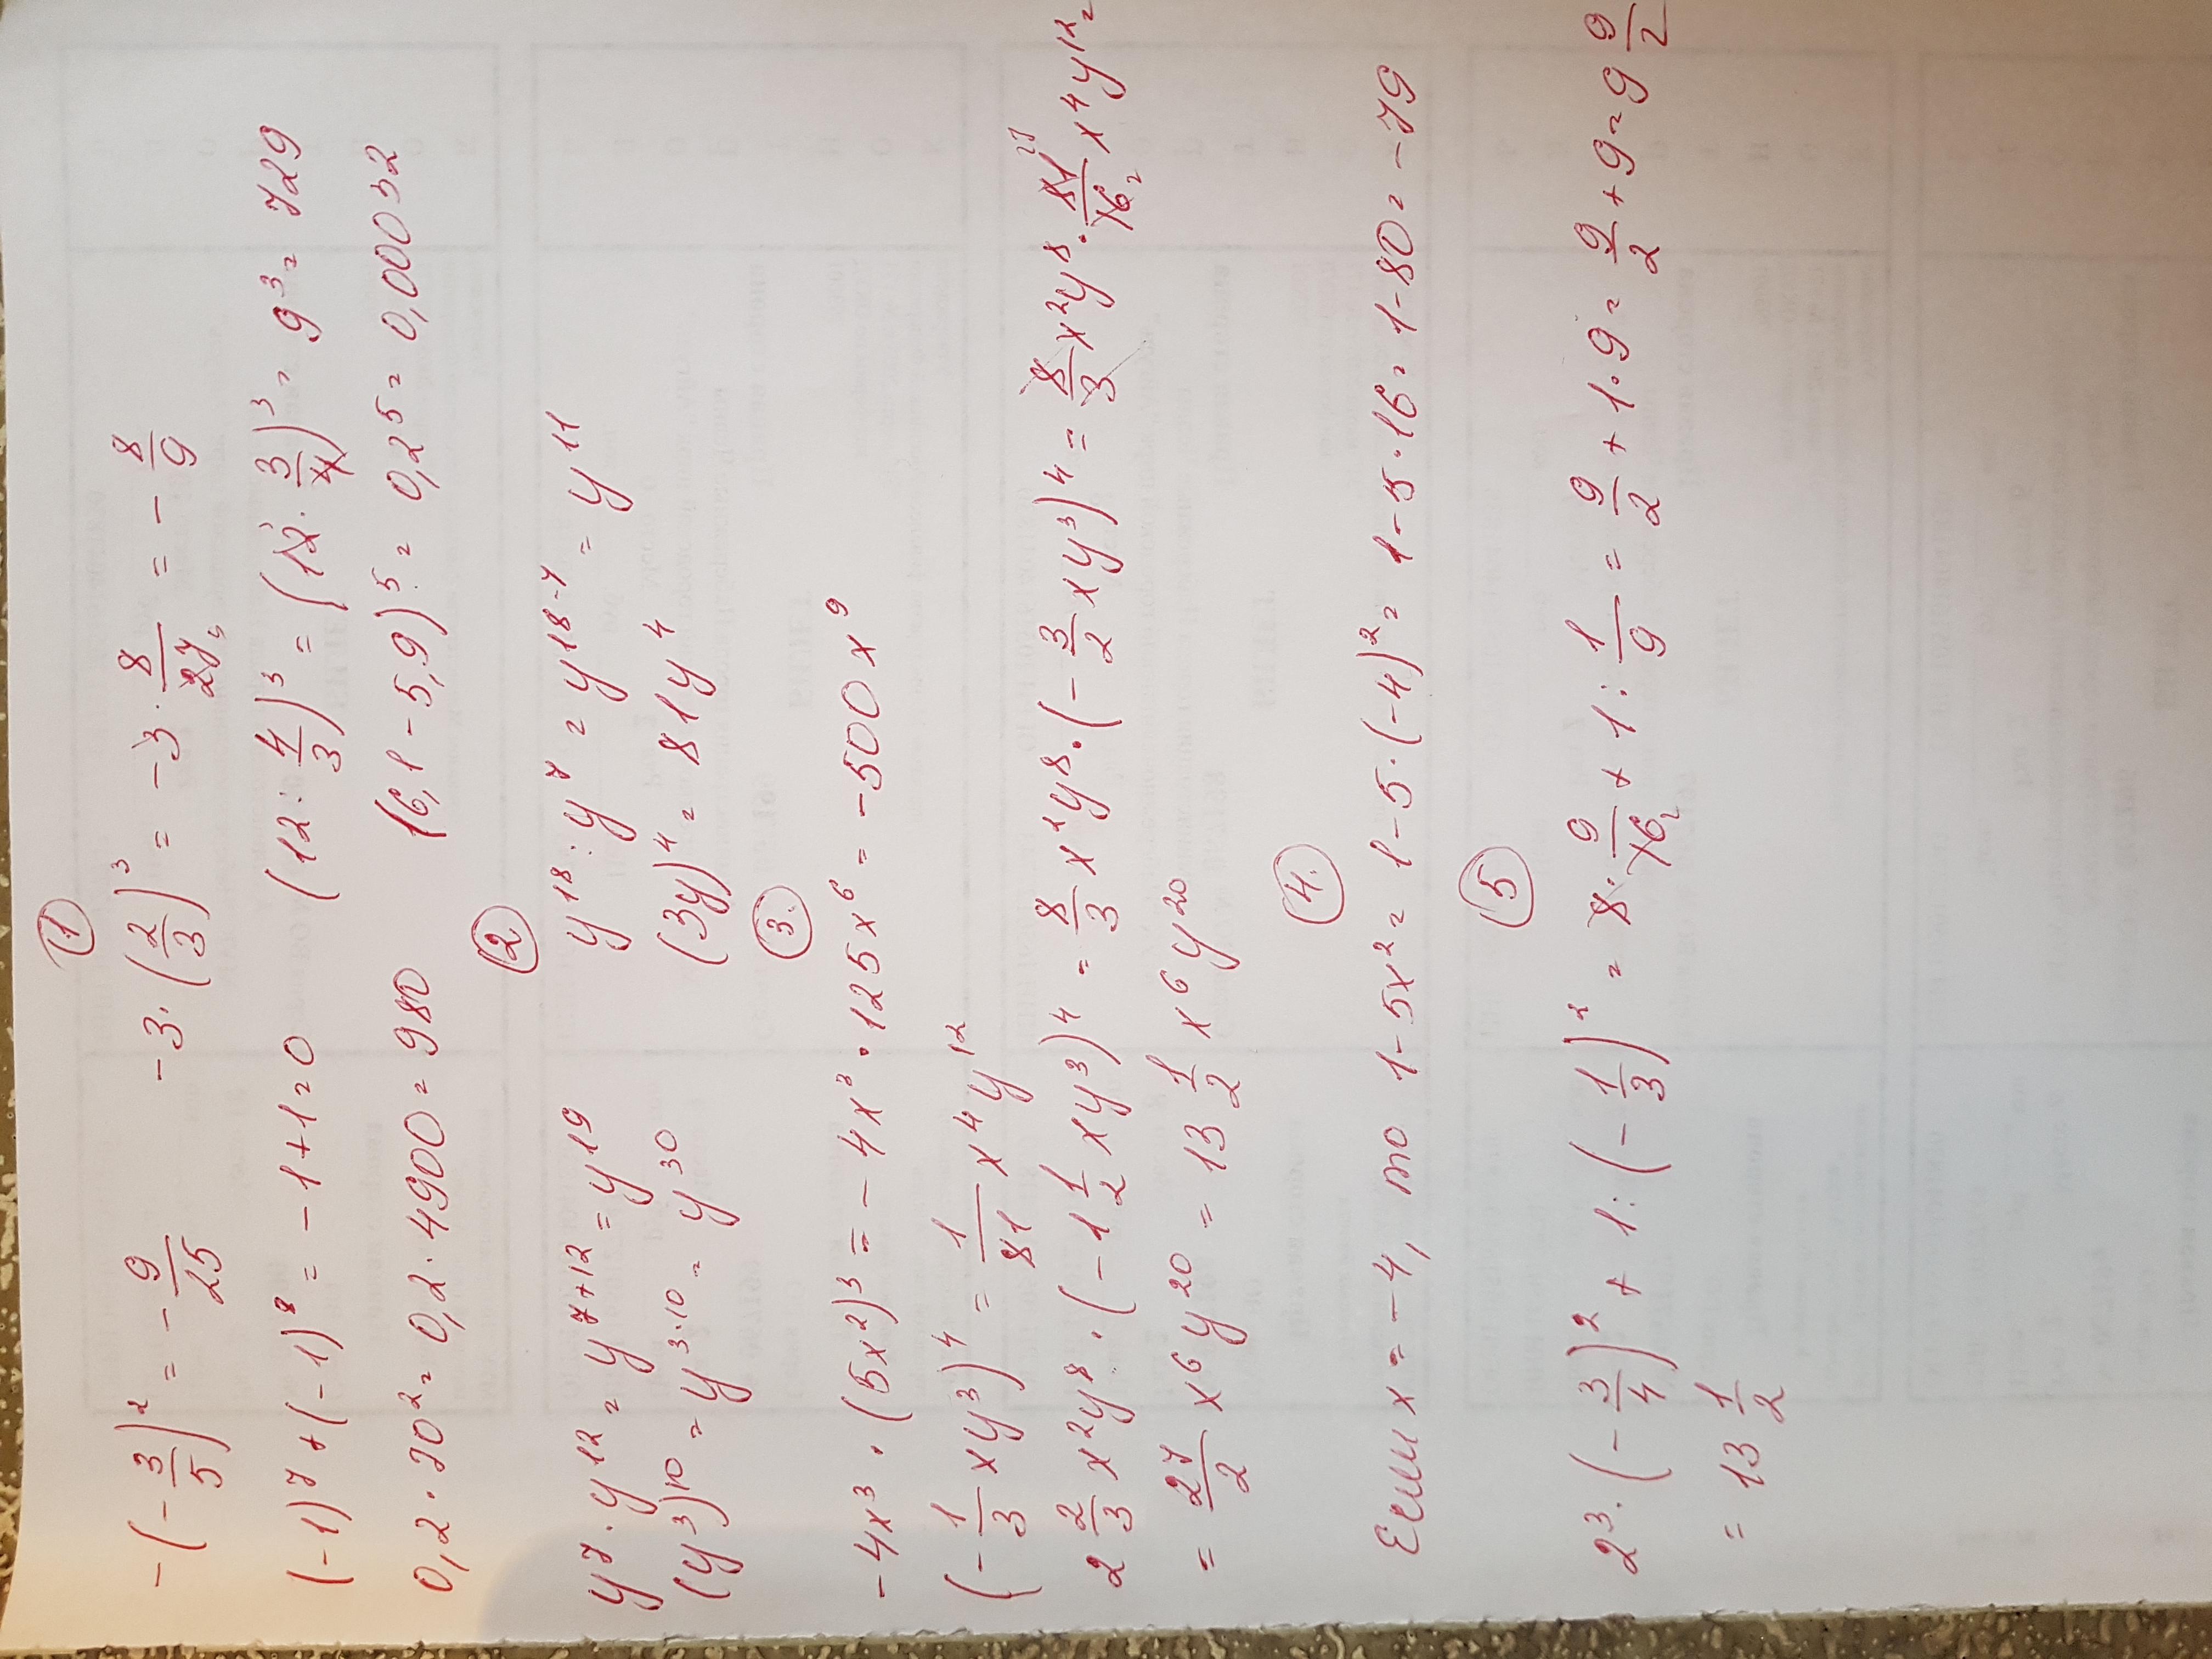 ①
-(-3/5)² = -9/25   -3·(2/3)³ = -3·8/27₉ = -8/9
(-1)⁷+(-1)⁸ = -1+1=0   (12:4/3)³ = (12·3/4)³ = 9³ = 729
0,2·70² = 0,2·4900 = 980   (6,1-5,9)⁵ = 0,2⁵ = 0,00032
②
y⁷·y¹² = y⁷⁺¹² = y¹⁹   y¹⁸:y⁷ = y¹⁸⁻⁷ = y¹¹
(y³)¹⁰ = y³·¹⁰ = y³⁰   (3y)⁴ = 81y⁴
③.
-4x³·(5x²)³ = -4x³·125x⁶ = -500x⁹
(-1/3xy³)⁴ = 1/81x⁴y¹²
2 2/3x²y⁸·(-1 1/2xy³)⁴ = 8/3x²y⁸·(-3/2xy³)⁴ = 8/3x²y⁸·81²⁷/16₂x⁴y¹² =
= 27/2x⁶y²⁰ = 13 1/2x⁶y²⁰
④.
Если x = -4, то 1-5x² = 1-5·(-4)² = 1-5·16 = 1-80 = -79
⑤
2³·(-3/4)²+1:(-1/3)² = 8·9/16₂+1:1/9 = 9/2+1·9 = 9/2+9 = 9 9/2
= 13 1/2